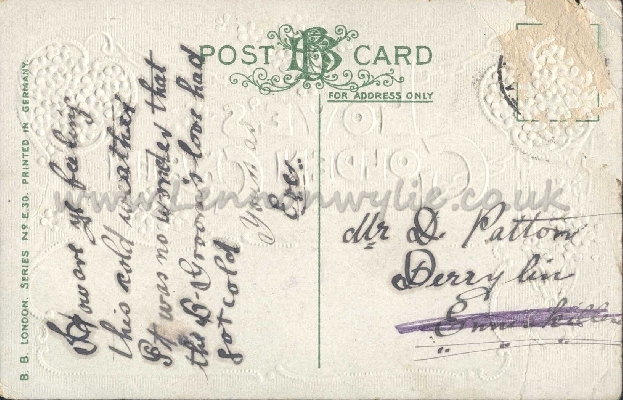 POST CARD
FOR ADDRESS ONLY
B. B. LONDON. SERIES No E.30. PRINTED IN GERMANY.
How are yf feeling
this cold weather
It was no wonder that
the B-Groom's love had
got cold
Yours as
Ever.
Mr D. Patton
Derrylin
Enniskillen
www.Lennonwylie.co.uk